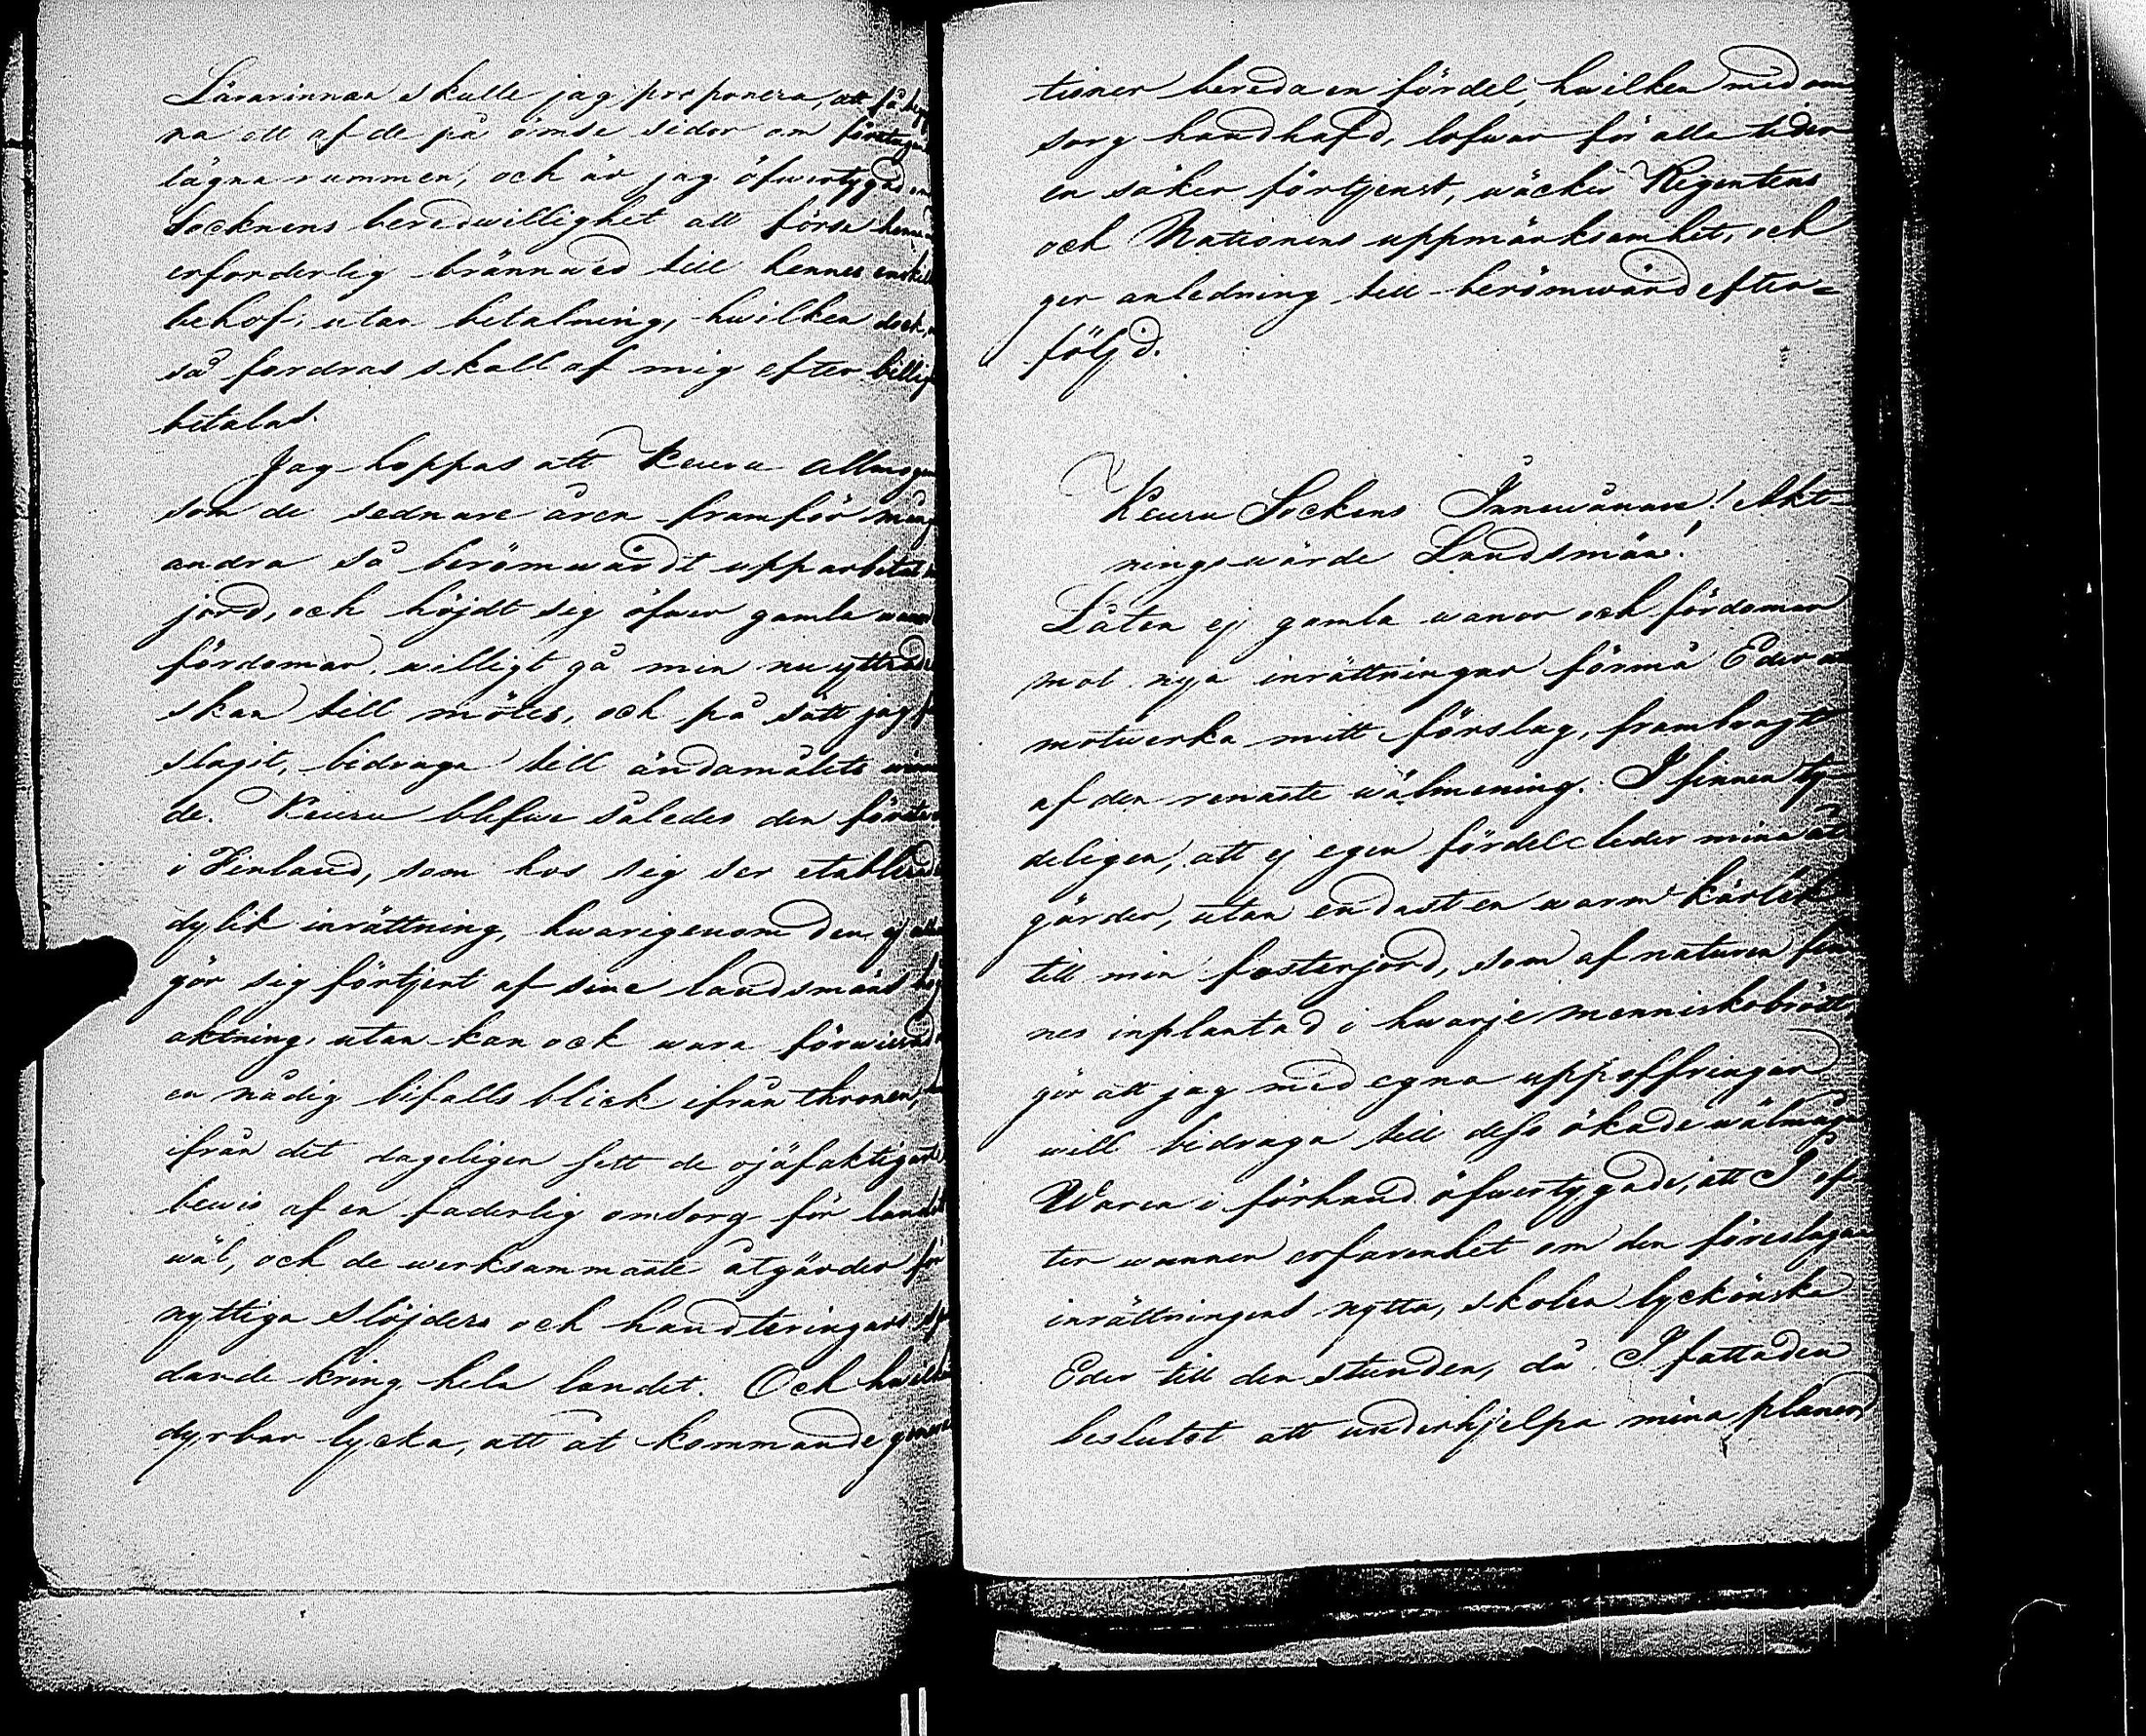 Lärarinnan skulle jag proponera, att få
na ett af de på ömse sidor om
lägna rummen, och är jag öfvertygad om
Socknens beredwillighet att förse
erforderlig brännwed till hennes enskil
behof, utan betalning, hwilken dock,
så fordras skall af mig efter billig
betalas.
Jag hoppas att Keuru Allmoge
som de sednare åren framför mång
andra så berömwärdt upparbetat
jord, och höjdt sig öfwer gamla
fördomar, willigt gå min nu yttrade
skan till mötes, och på sätt jag
slagit, bidraga till ändamålets
de. Keuru blefwe således den första
i Finland, som hos sig ser etablerad
dylik inrättning, hwarigenom den, ej
gör sig förtjent af sine landsmäns hög
aktning, utan kan ock wara förwissad
en nådig bifalls blick ifrån thronen,
ifrån det dageligen sett de ojäfaktigaste
bewis af en faderlig omsorg för landets
wäl, och de werksammaste åtgärder för
nyttiga slöjders och handteringars
dande kring hela landet. Och hwilken
dyrbar lycka, att åt kommande genera
tioner bereda en fördel, hwilken med om
sorg handhafd, lofwar för alla tider
en säker förtjenst, wäcker Regentens
och Nationens uppmärksamhet, och
ger anledning till berömwärd efter=
följd.
Keuru Sockens Innewånare! Akt
ningswärde Landsmän!
Låten ej gamla wanor och fördomar
mot nya inrättningar förmå Eder att
motwerka mitt förslag, frambragt
af den renaste wälmening. I finnen ty
deligen, att ej egen fördel leder mina åt
gärder, utan endast en warm kärlek
till min fosterjord, som af naturen fin
nes inplantad i hwarje menniskobröst
gör att jag med egna uppoffringar
will bidraga till dess ökade wälmåga
Waren i förhand öfwertygade, att I ef
ter wunnen erfarenhet om den föreslagna
inrättningens nytta, skolen lyckönska
Eder till den stunden, då I fattaden
beslutet att underhjelpa mina planer